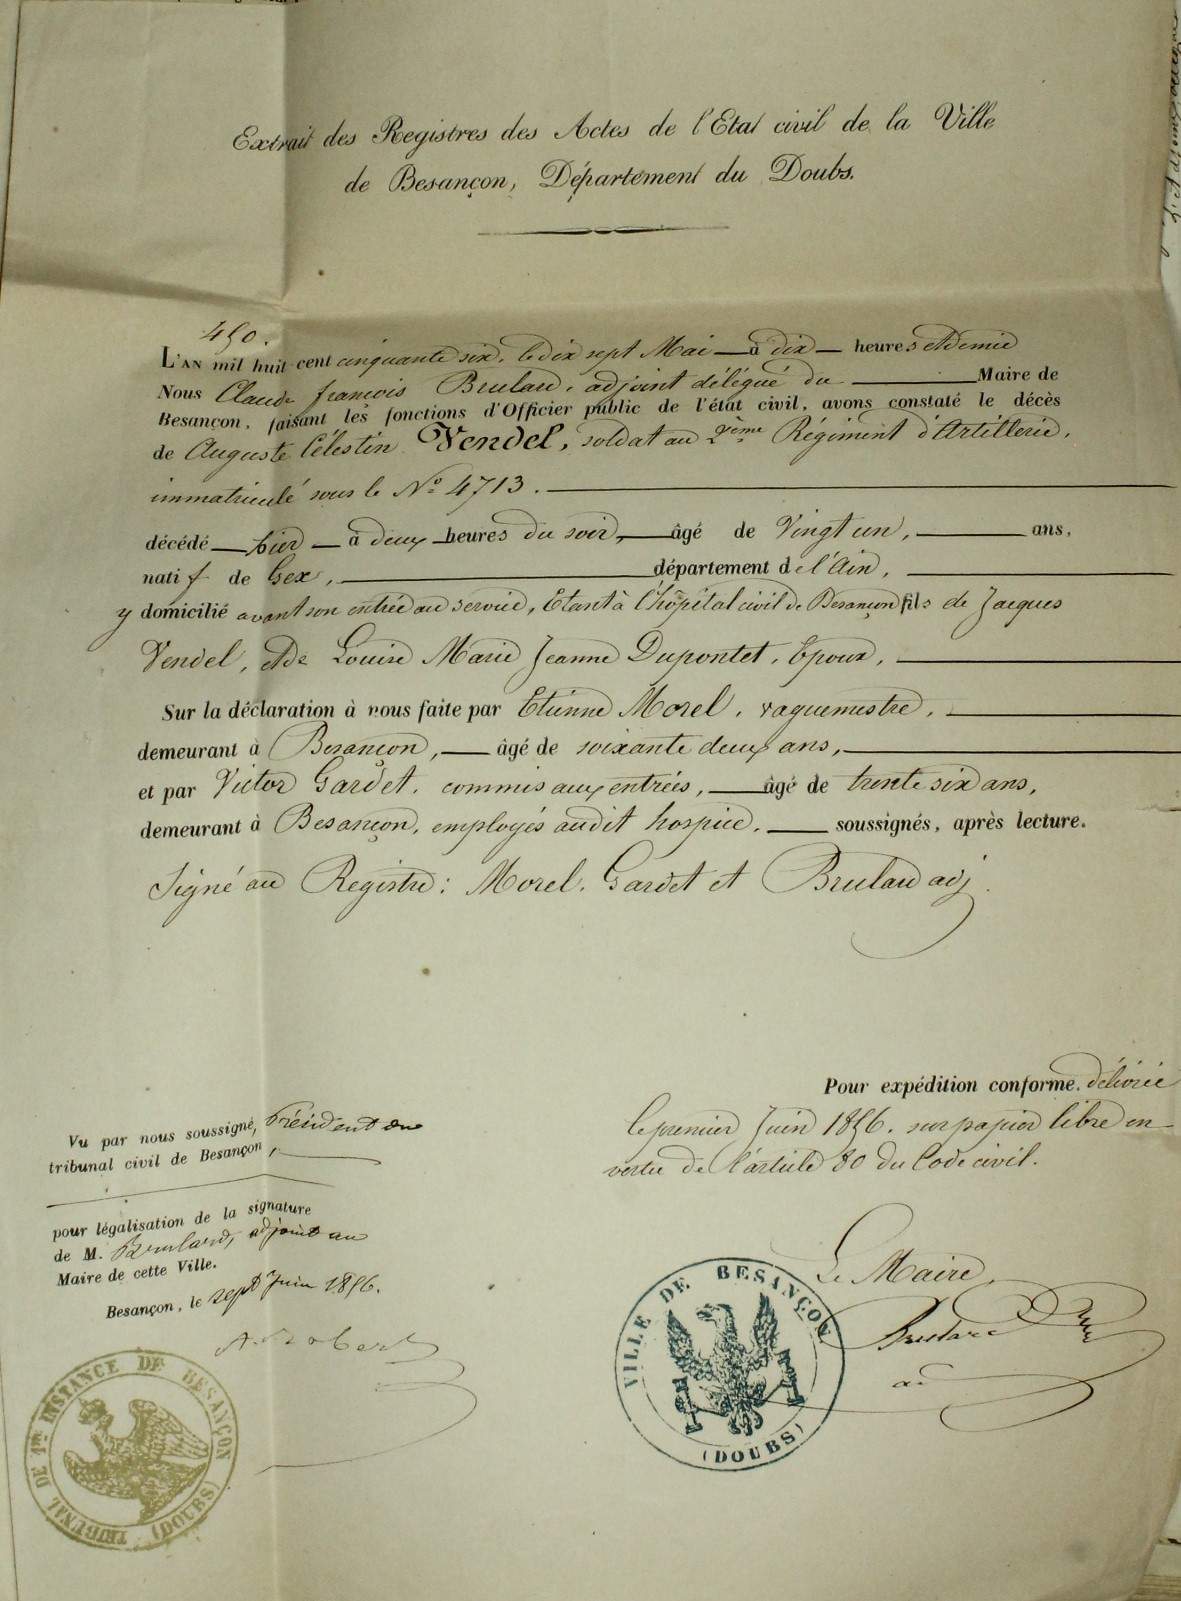 Extrait des Registres des Actes de l'Etat civil de la Ville
de Besançon, Département du Doubs.
450.
L'AN mil huit cent cinquante six, le dix sept Mai à dix heures et demie
Nous Claude françois Brulard, adjoint délégué du Maire de
Besançon, faisant les fonctions d'Officier public de l'état civil, avons constaté le décès
de Auguste Célestin Vendel, soldat au 2ème Régiment d'Artillerie,
immatriculé sous le No 4713.
décédé hier à deux heures du soir, âgé de Vingt un, ans,
natif de Gex, département de l'Ain,
y domicilié avant son entrée au service, Etant à l'hôpital civil de Besançon fils de Jacques
Vendel, et de Louise Marie Jeanne Dupontet, Epoux,
Sur la déclaration à nous faite par Etienne Morel, vaguemestre,
demeurant à Besançon, âgé de soixante deux ans,
et par Victor Gardet, commis aux entrées, âgé de trente six ans,
demeurant à Besançon, employés audit hospice, soussignés, après lecture.
Signé au Registre: Morel, Gardet et Brulard adj.
Pour expédition conforme. délivrée
le premier Juin 1856. sur papier libre en
vertu de l'article 80 du Code civil.
Vu par nous soussigné, Président du
tribunal civil de Besançon,
pour légalisation de la signature
de M. Brulard, adjoint au
Maire de cette Ville.
Besançon, le sept Juin 1856.
A. Robert
Le Maire,
Brulard
VILLE DE BESANÇON
(DOUBS)
TRIBUNAL DE 1re INSTANCE DE BESANÇON
(DOUBS)